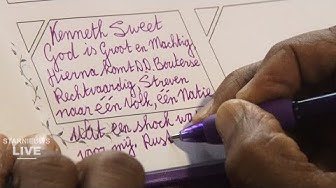 Kenneth Sweet
God is Groot en Machtig
Hierna komt D.D. Bouterse
Rechtvaardig, Streven
naar één Volk, één Natie
Wat een shock wa
voor mij. Rush
STARNIEUWS
LIVE